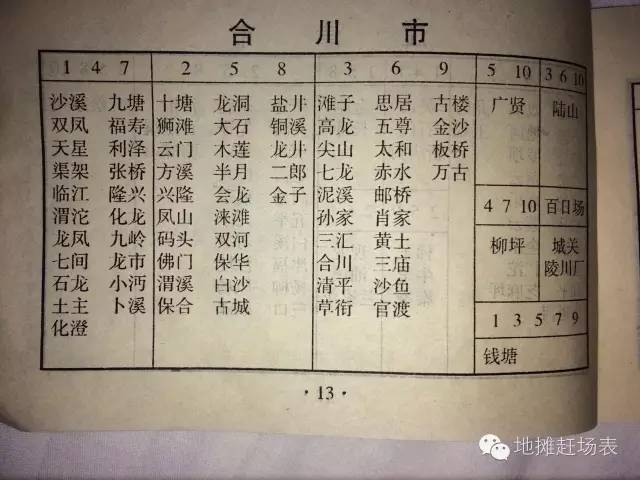 合川市
1 4 7
2 5 8
3 6 9
5 10
3 6 10
沙溪 九塘
双凤 福寿
天星 利泽
渠架 张桥
临江 隆兴
渭沱 化龙
龙凤 九岭
七间 龙市
石龙 小沔
土主 卜溪
化澄
十塘 龙洞 盐井
狮滩 大石 铜溪
云门 木莲 龙井
方溪 半月 二郎
兴隆 会龙 金子
凤山 涞滩
码头 双河
佛门 保华
渭溪 白沙
保合 古城
滩子 思居 古楼
高龙 五尊 金沙
尖山 太和 板桥
七龙 赤水 万古
泥溪 邮桥
孙家 肖家
三汇 黄土
合川 三庙
清平 沙鱼
草街 官渡
广贤
陆山
4 7 10
百日场
柳坪
城关
陵川厂
1 3 5 7 9
钱塘
·13·
地摊赶场表